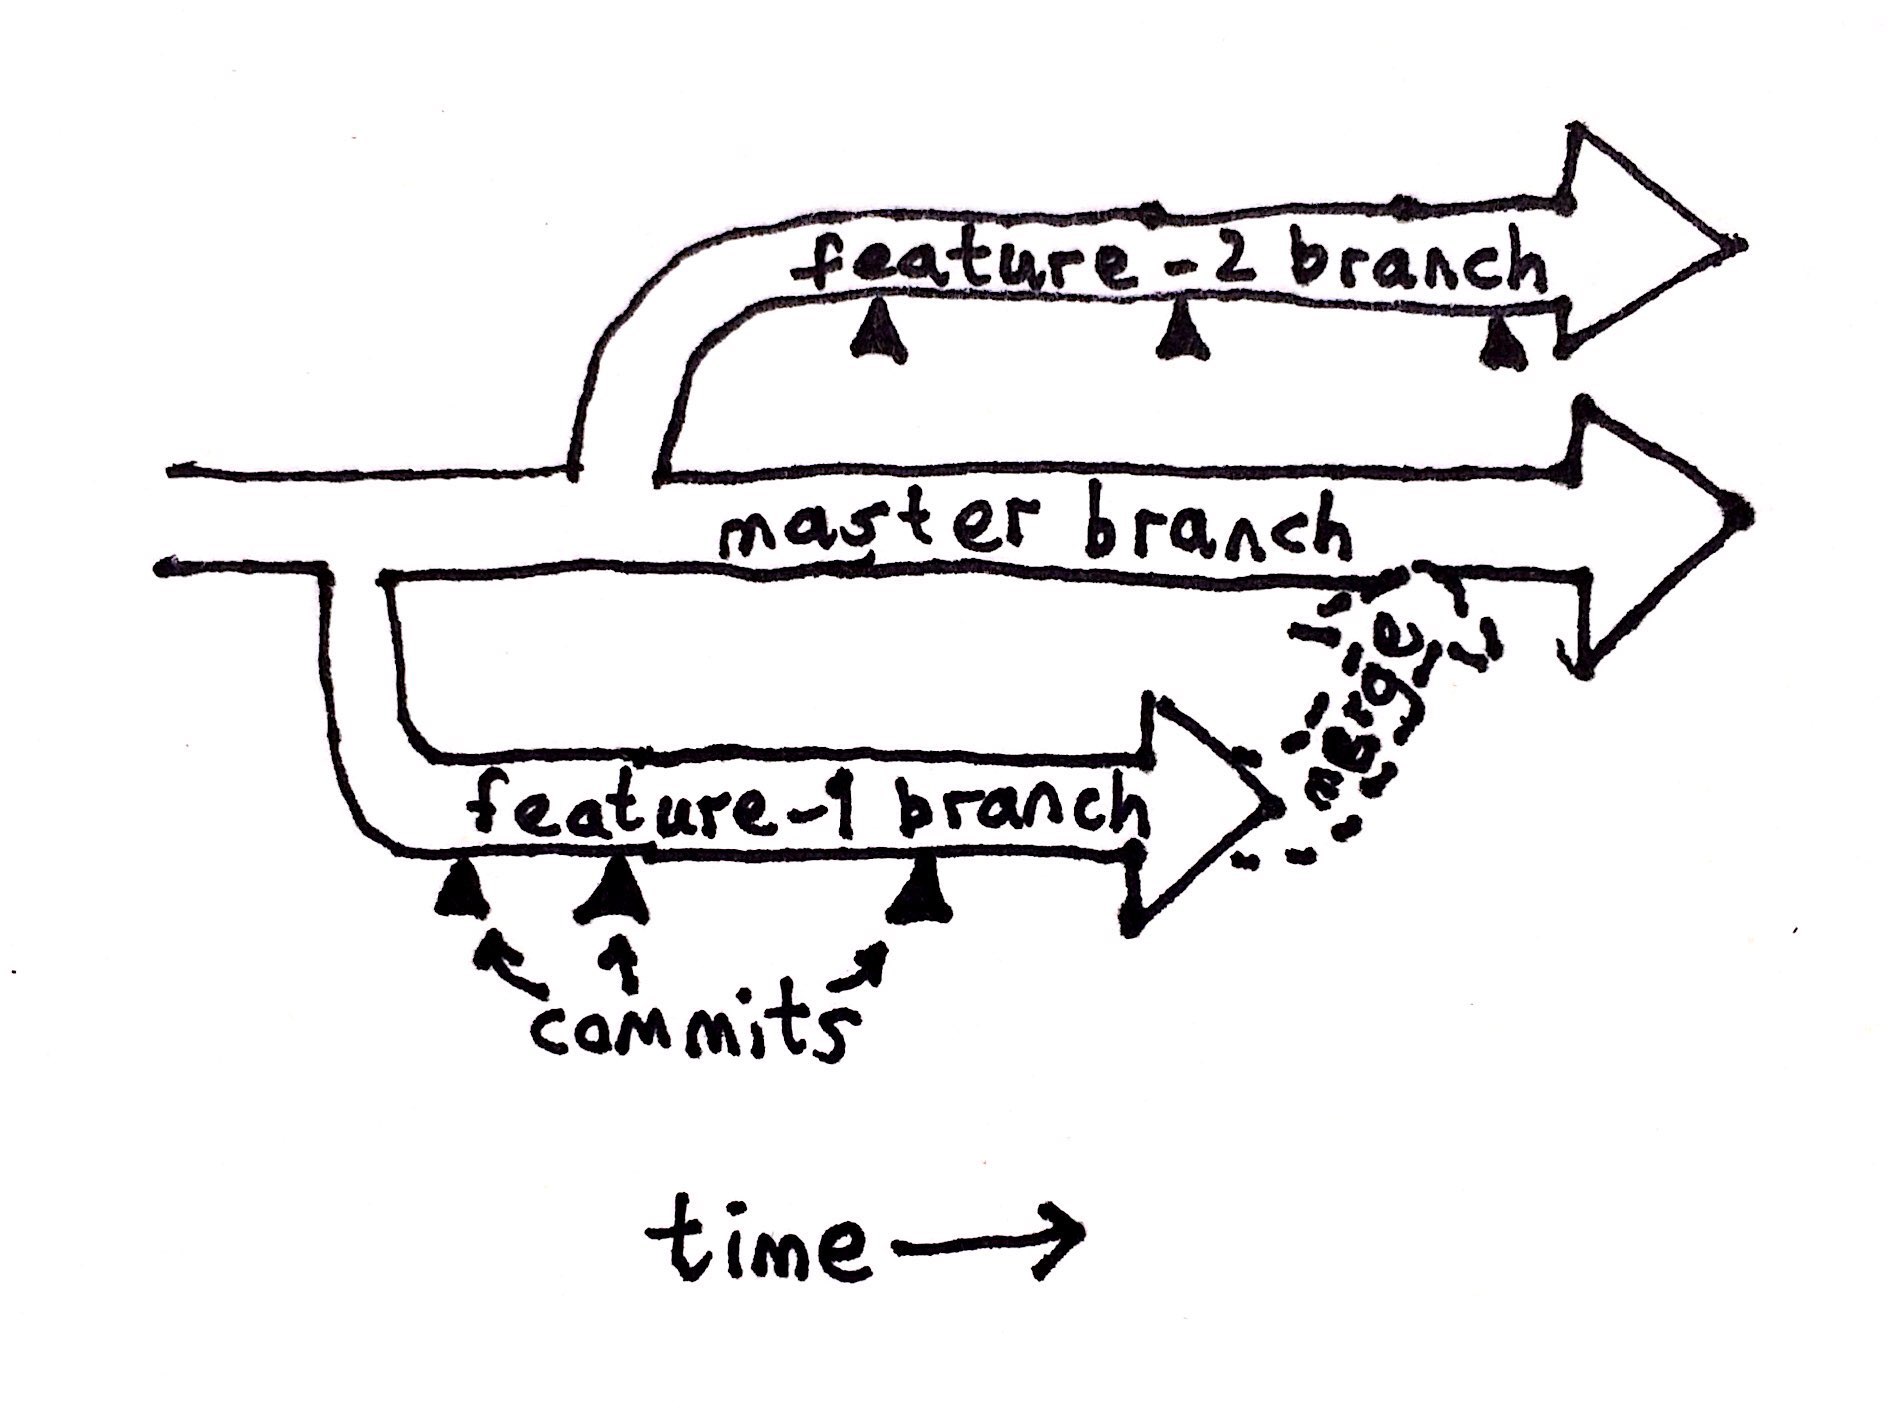 feature-2 branch
master branch
merge
feature-1 branch
commits
time